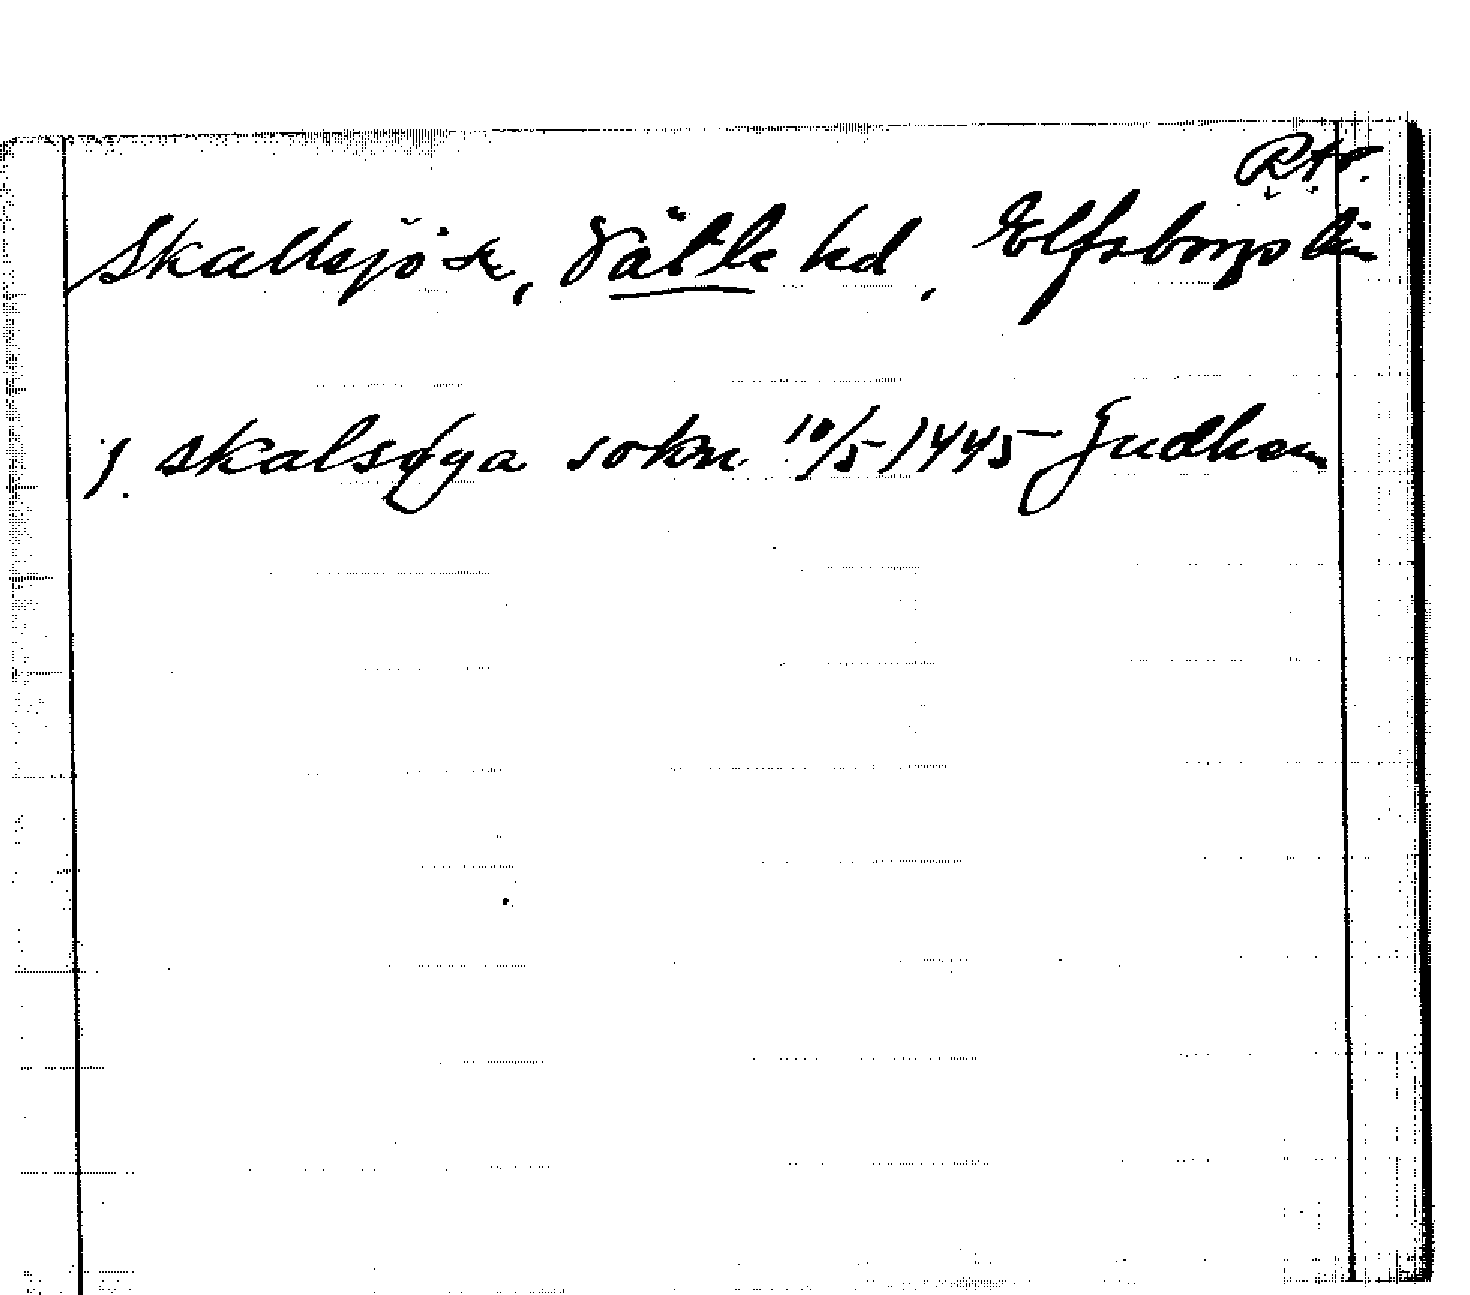 R A P.
Skallsjö sn, Vätle hd, Elfsborgs län
j. skalsøga sokn 10/5 1445 Gudhem